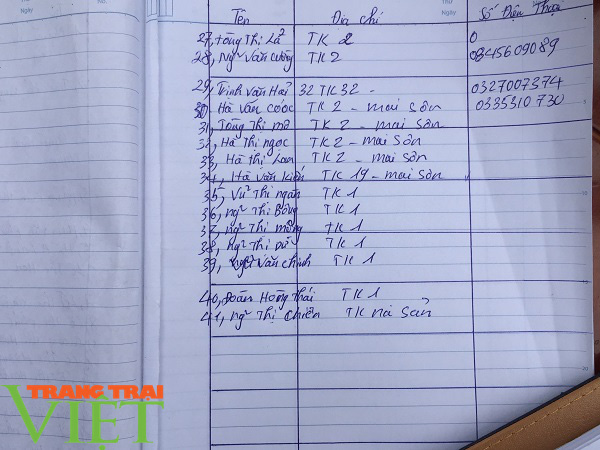 Tên Địa chỉ Số Điện Thoại
27, Tòng Thị Lả TK 2 0
28, Ngũ Văn Cường TK2 0845609089
29, Trịnh Văn Hải 32 TK 32 - 0327007374
30 Hà Văn Coóc TK 2 - mai Sơn 0335310730
31, Tòng Thị mơ TK 2 - mai Sơn
32, Hà Thị ngọc TK 2 - mai Sơn
33, Hà Thị Lan TK 2 - mai Sơn
34, Hà Văn Kiên TK 19 - mai Sơn
35, Vũ Thị ngân TK 1
36, ngũ Thị Bông TK 1
37, ngũ Thị mông TK 1
38, Ngũ Thị TK 1
39, Văn chinh TK 1
40, Đoàn Hồng Thái TK 1
41, Ngũ Thị Chiên TK nà Sản
TRANG TRẠI
VIỆT